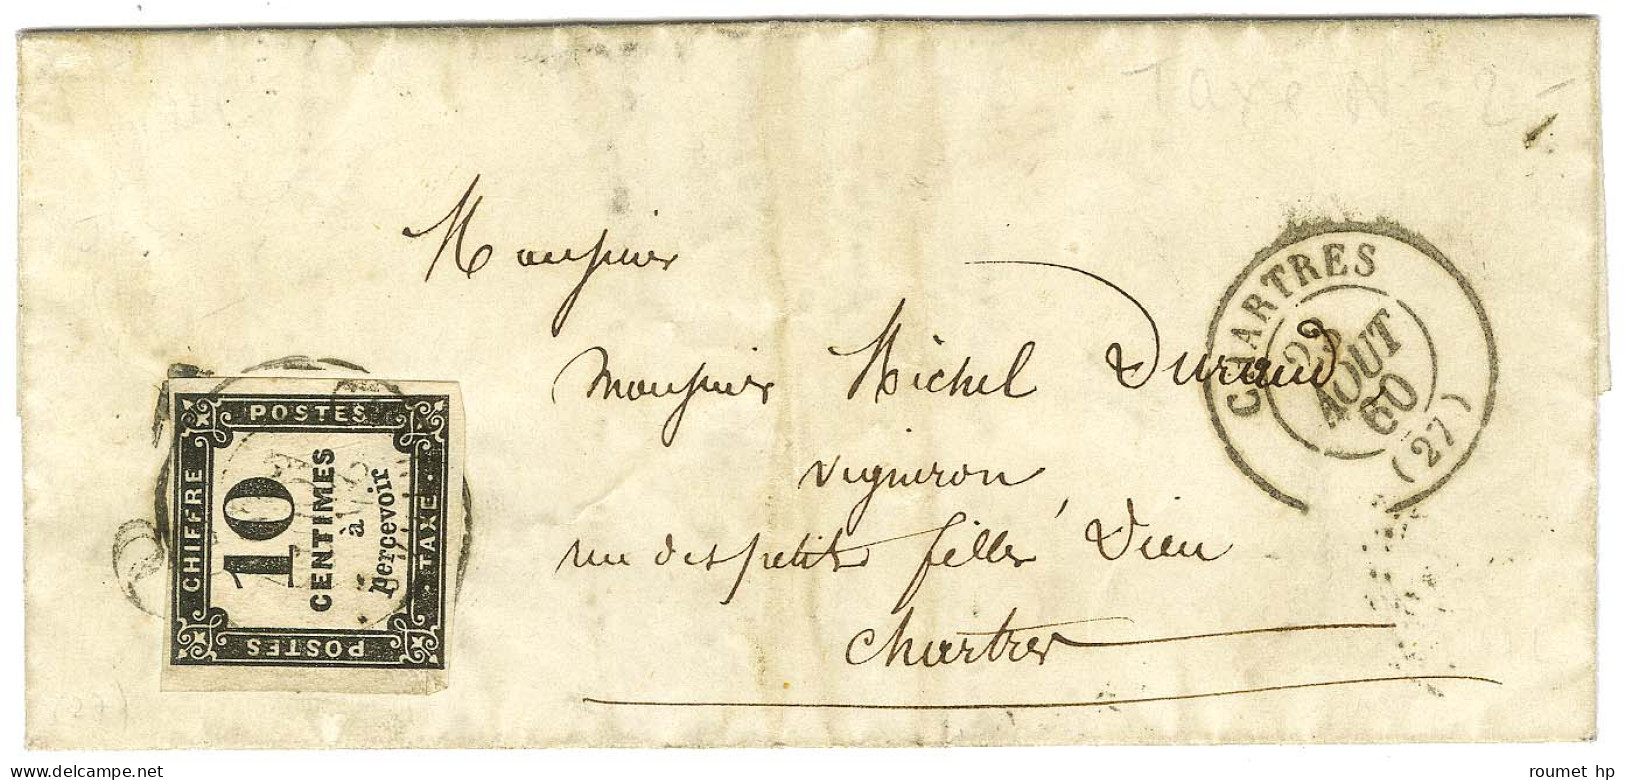 Taxe N° 2
Monsieur
Monsieur Michel Durand
vigneron
rue des petits filles Dieu
Chartres
CHARTRES
23
AOUT
60
(27)
POSTES
CHIFFRE
10
CENTIMES
à
percevoir
TAXE
POSTES
(27)
roumet hp